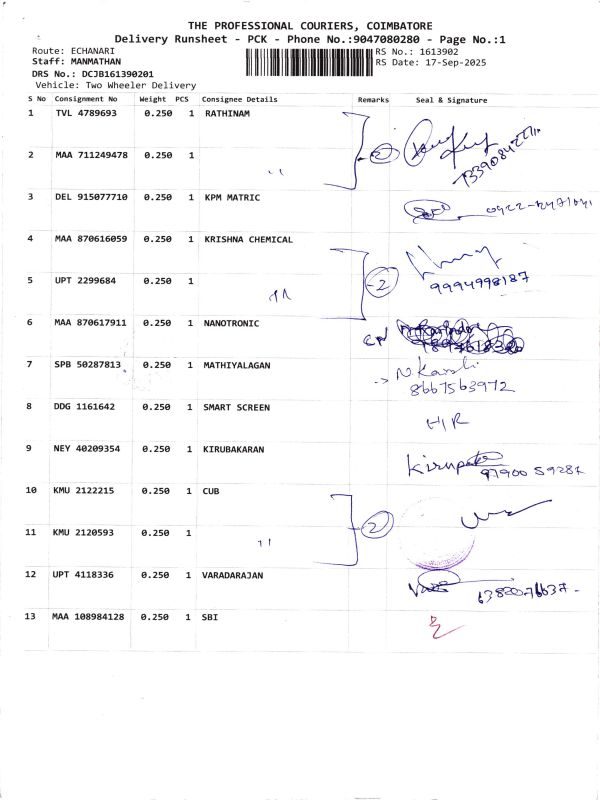 THE PROFESSIONAL COURIERS, COIMBATORE
Delivery Runsheet - PCK - Phone No.:9047080280 - Page No.:1
Route: ECHANARI RS No.: 1613902
Staff: MANMATHAN RS Date: 17-Sep-2025
DRS No.: DCJB161390201
Vehicle: Two Wheeler Delivery
S No Consignment No Weight PCS Consignee Details Remarks Seal & Signature
1 TVL 4789693 0.250 1 RATHINAM
2 MAA 711249478 0.250 1 " 2
3 DEL 915077710 0.250 1 KPM MATRIC
4 MAA 870616059 0.250 1 KRISHNA CHEMICAL
5 UPT 2299684 0.250 1 " 2 9994998187
6 MAA 870617911 0.250 1 NANOTRONIC
7 SPB 50287813 0.250 1 MATHIYALAGAN
8667563972
8 DDG 1161642 0.250 1 SMART SCREEN H/R
9 NEY 40209354 0.250 1 KIRUBAKARAN 97900 59287
10 KMU 2122215 0.250 1 CUB
11 KMU 2120593 0.250 1 " 2
12 UPT 4118336 0.250 1 VARADARAJAN
13 MAA 108984128 0.250 1 SBI